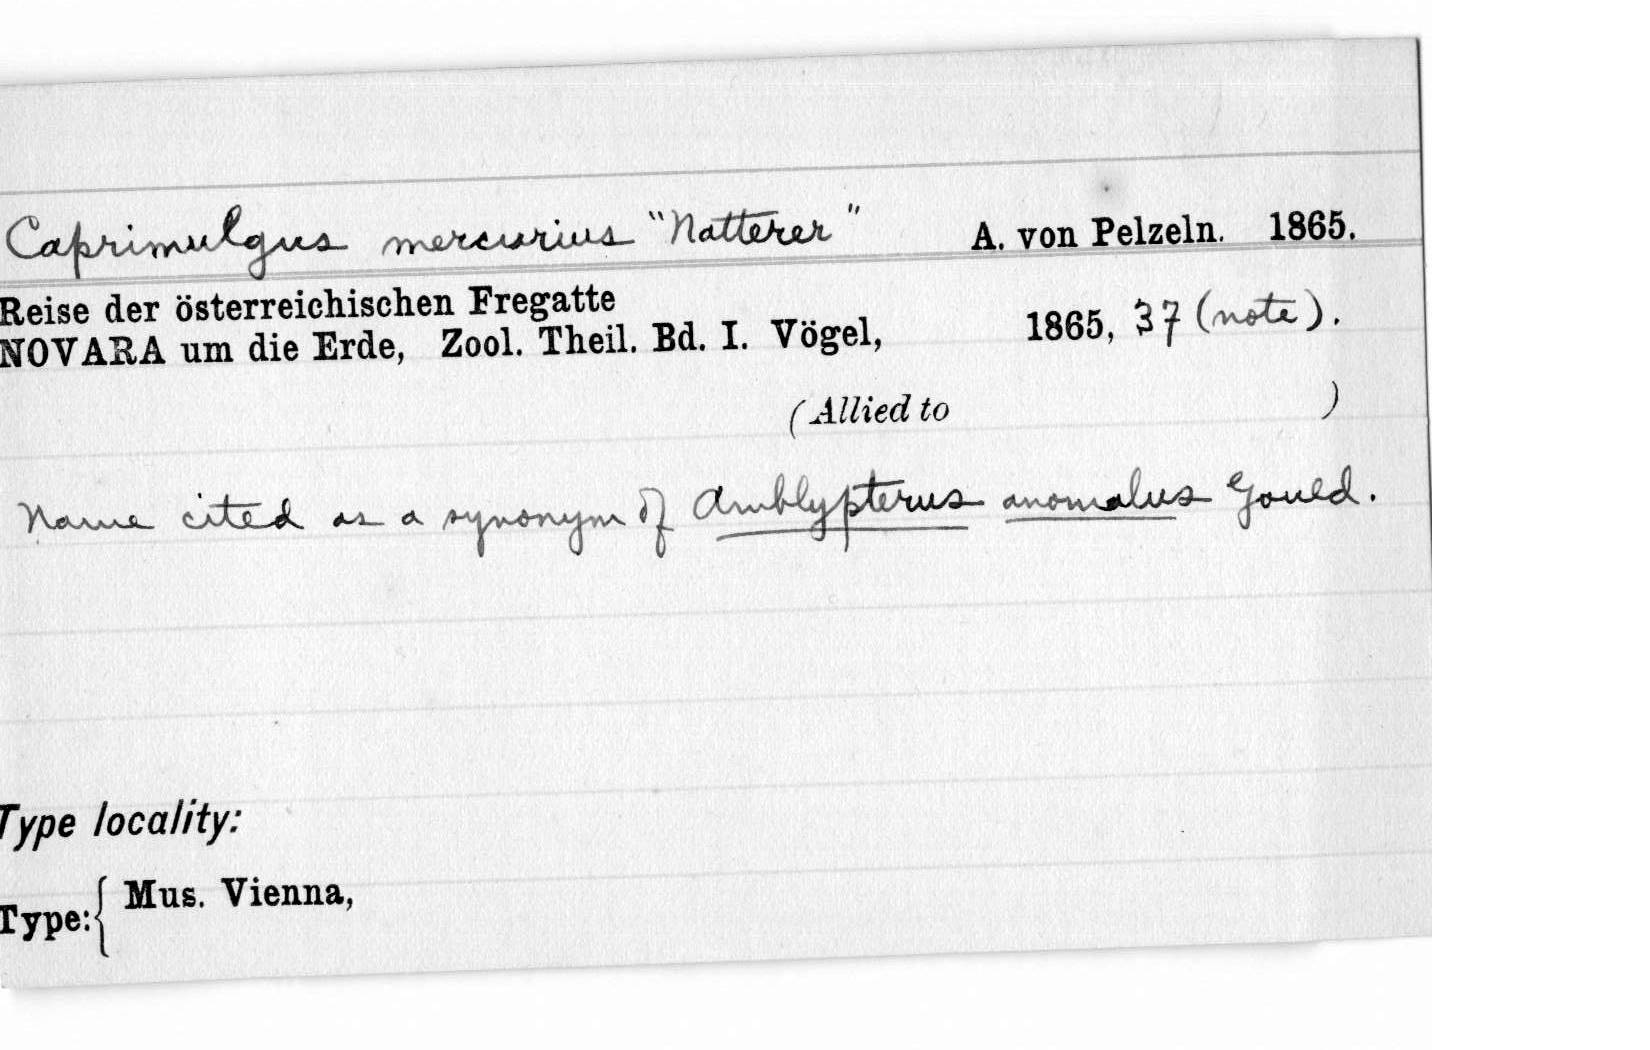 Caprimulgus mercurius "Natterer" A. von Pelzeln. 1865.
Reise der österreichischen Fregatte
NOVARA um die Erde, Zool. Theil. Bd. I. Vögel, 1865, 37 (note).
(Allied to )
Name cited as a synonym of Amblypterus anomalus Gould.
Type locality:
Type: { Mus. Vienna,